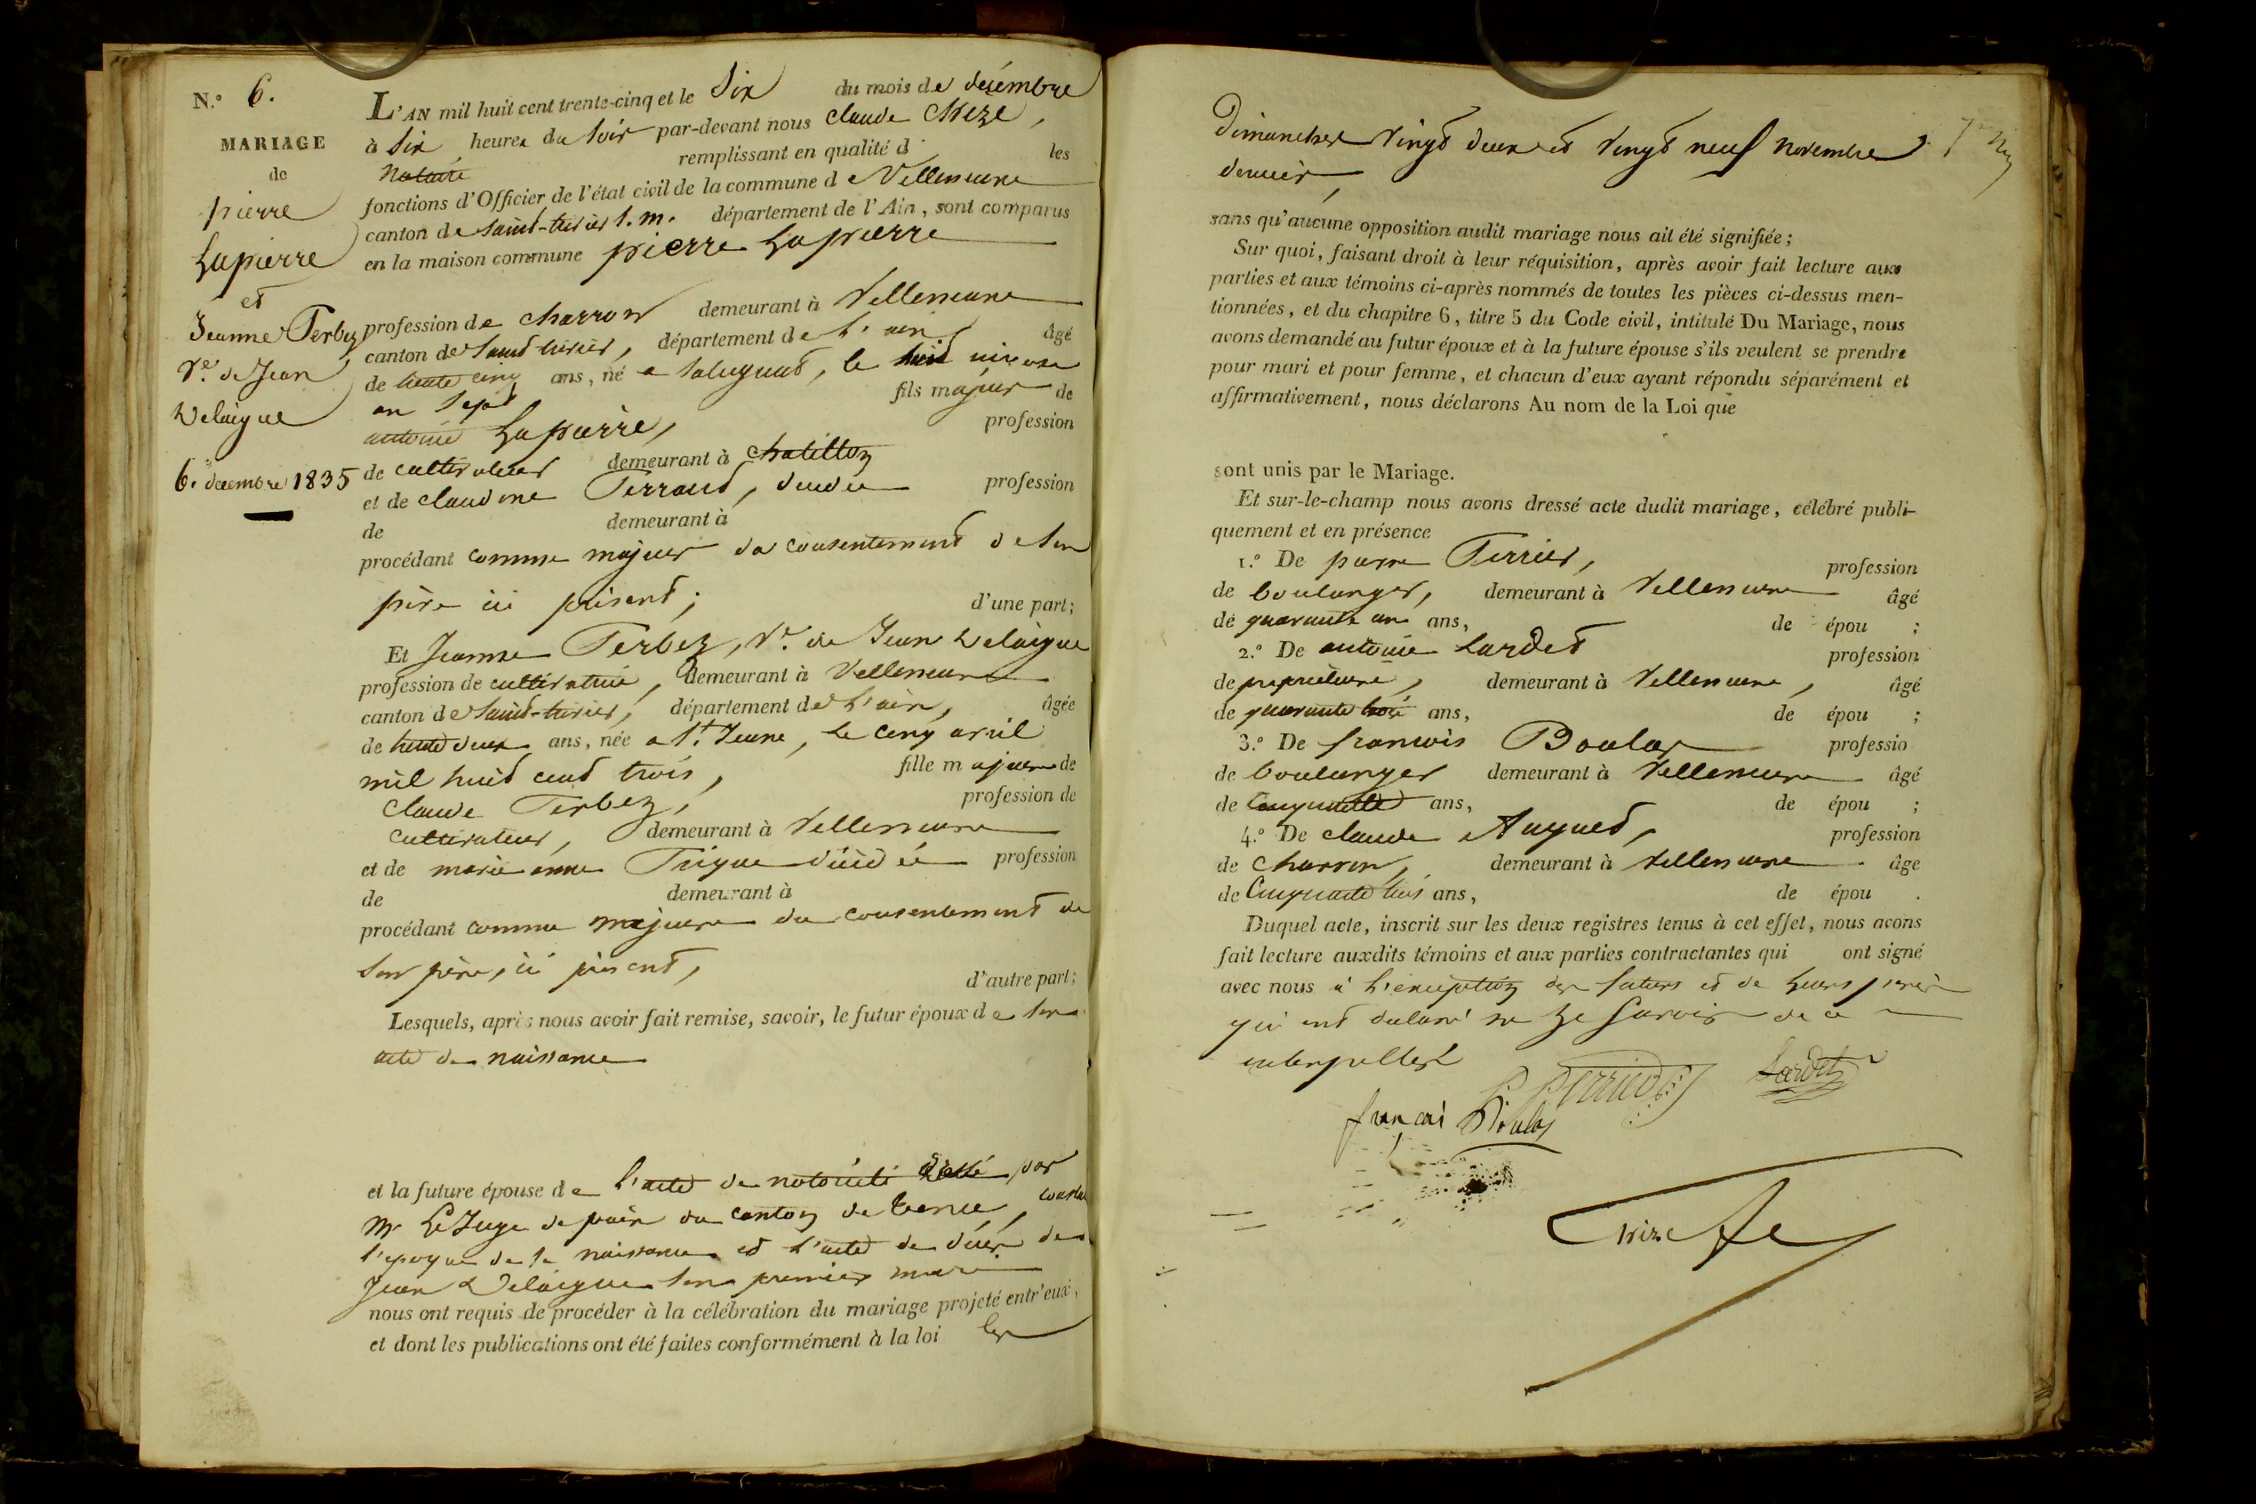 N.° 6.
MARIAGE
de
pierre
Lapierre
et
Jeanne Perbez
Ve. de Jean
Delaigue
6. décembre 1835
L'AN mil huit cent trente-cinq et le Six du mois de décembre
à Six heures du Soir par-devant nous claude Cheze,
Notaire remplissant en qualité d les
fonctions d'Officier de l'état civil de la commune de Villeneuve
canton de Saint-trivier S. m. département de l'Ain, sont comparus
en la maison commune pierre Lapierre
profession de charron demeurant à Villeneuve
canton de Saint trivier, département de l'ain âgé
de trente cinq ans, né a Saluguat, le huit nivose
an Sept fils majeur de
antoine Lapierre, profession
de cultivateur demeurant à chatillon
et de claudine Perraud, décédée profession
de demeurant à
procédant comme majeur du consentement de Son
père ici présent; d'une part;
Et Jeanne Perbez, Ve. de Jean Delaigue
profession de cultivatrice, demeurant à Villeneuve
canton de Saint-trivier, département de L'ain, âgée
de trente deux ans, née a St. Jeune, le cinq avril
mil huit cent trois, fille majeure de
Claude Perbez, profession de
cultivateur, demeurant à Villeneuve
et de marie anne décédée profession
de demeurant à
procédant comme majeure du consentement de
Son père, ici présent, d'autre part;
Lesquels, après nous avoir fait remise, savoir, le futur époux de Son
acte de naissance
et la future épouse de l'acte de notoriété dressé par
Mr Le Juge de paix du canton de
l'époque de Sa naissance et l'acte de décès de
Jean Delaigue Son premier mari
nous ont requis de procéder à la célébration du mariage projeté entr'eux,
et dont les publications ont été faites conformément à la loi les
Dimanches Vingt deux et Vingt neuf Novembre
dernier,
sans qu'aucune opposition audit mariage nous ait été signifiée;
Sur quoi, faisant droit à leur réquisition, après avoir fait lecture aux
parties et aux témoins ci-après nommés de toutes les pièces ci-dessus men-
tionnées, et du chapitre 6, titre 5 du Code civil, intitulé Du Mariage, nous
avons demandé au futur époux et à la future épouse s'ils veulent se prendre
pour mari et pour femme, et chacun d'eux ayant répondu séparément et
affirmativement, nous déclarons Au nom de la Loi que
sont unis par le Mariage.
Et sur-le-champ nous avons dressé acte dudit mariage, célébré publi-
quement et en présence
1.° De pierre Perrier, profession
de boulanger, demeurant à Villeneuve âgé
de quarante un ans, de épou ;
2.° De antoine Lardet profession
de propriétaire, demeurant à Villeneuve, âgé
de quarante trois ans, de épou ;
3.° De francois Boulas professio
de boulanger demeurant à Villeneuve âgé
de Cinquante ans, de épou ;
4.° De claude Auguet, profession
de Charron, demeurant à Villeneuve âge
de Cinquante trois ans, de épou .
Duquel acte, inscrit sur les deux registres tenus à cet effet, nous avons
fait lecture auxdits témoins et aux parties contractantes qui ont signé
avec nous à L'exception des futurs et de Leurs pères
qui ont déclaré ne Le Savoir de ce
interpellés
P Perrier
Lardet
francois Boulas